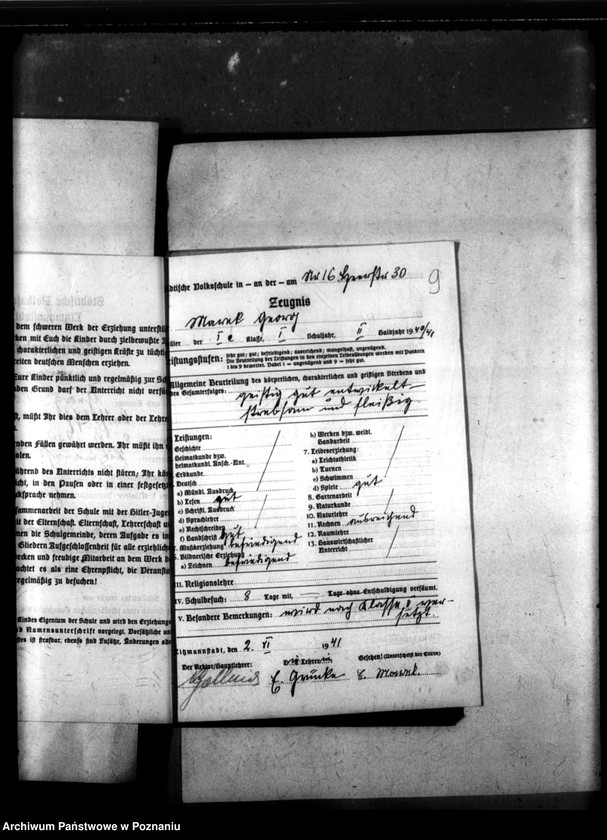 dem schweren Werk der Erziehung unterstü
ken mit Euch die Kinder durch zielbewußte
charakterlichen und geistigen Kräfte zu tüchtig
reiten deutschen Menschen erziehen.
Eure Kinder pünktlich und regelmäßig zur Sch
den Grund darf der Unterricht nicht versä
t, müßt Ihr dies dem Lehrer oder der Lehrer
enden Fällen gewährt werden. Ihr müßt ihn
olen.
ährend des Unterrichts nicht stören; Ihr kön
icht, in den Pausen oder in einer festgesetz
cksprache nehmen.
sammenarbeit der Schule mit der Hitler-Juge
it der Elternschaft. Elternschaft, Lehrerschaft u
en die Schulgemeinde, deren Aufgabe es in
Gliedern Aufgeschlossenheit für alle erziehliche
ecken und freudige Mitarbeit an dem Werk d
achtet es als eine Ehrenpflicht, die Veransta
egelmäßig zu besuchen!
Kindes Eigentum der Schule und wird den Erziehung
d Namensunterschrift vorgelegt. Vorsätzliche un
tes ist strafbar, ebenso sind Zusätze, Änderungen ode
ädtische Volksschule in – an der – am Nr 16 Heerstr 30
9
Zeugnis
Marek Georg
üler der I c Klasse, I Schuljahr, II Halbjahr 1940/41
eistungsstufen: sehr gut; gut; befriedigend; ausreichend; mangelhaft; ungenügend.
Die Beurteilung der Leistungen in den einzelnen Leibesübungen werden mit Punkten
1 bis 9 bewertet. Dabei 1 = ungenügend und 9 = sehr gut.
Allgemeine Beurteilung des körperlichen, charakterlichen und geistigen Strebens und
des Gesamterfolges: geistig gut entwickelt
strebsam und fleißig.
Leistungen:
Geschichte
Heimatkunde bzw.
heimatkundl. Ansch.-Unt.
Erdkunde
Deutsch
a) Mündl. Ausdruck
b) Lesen gut
c) Schriftl. Ausdruck
d) Sprachlehre
e) Rechtschreiben
f) Handschrift gut
Musikerziehung befriedigend
Bildnerische Erziehung
a) Zeichnen befriedigend
b) Werken bzw. weibl.
Handarbeit
7. Leibeserziehung:
a) Leichtathletik
b) Turnen
c) Schwimmen
d) Spiele gut
8. Gartenarbeit
9. Naturkunde
10. Naturlehre
11. Rechnen ausreichend
12. Raumlehre
13. Hauswirtschaftlicher
Unterricht
III. Religionslehre
IV. Schulbesuch: 8 Tage mit, — Tage ohne Entschuldigung versäumt.
V. Besondere Bemerkungen: wird nach Klasse II ver-
setzt.
Litzmannstadt, den 2. VI 1941
Der Rektor/Hauptlehrer:
Lehrer
Gesehen! (Unterschrift der Eltern)
E. Grünke
E. Marek.
Archiwum Państwowe w Poznaniu